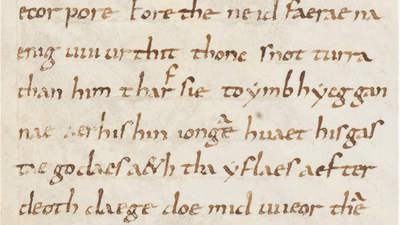 etcor pore fore the neid faerae na
enig uuiurthit thonc snotturra
than him tharf sie to ymbhycggan
nae aer his hin iongae huaet his gas
tae godaes a&h tha yflaes aefter
deoth daege doemid uueor thae